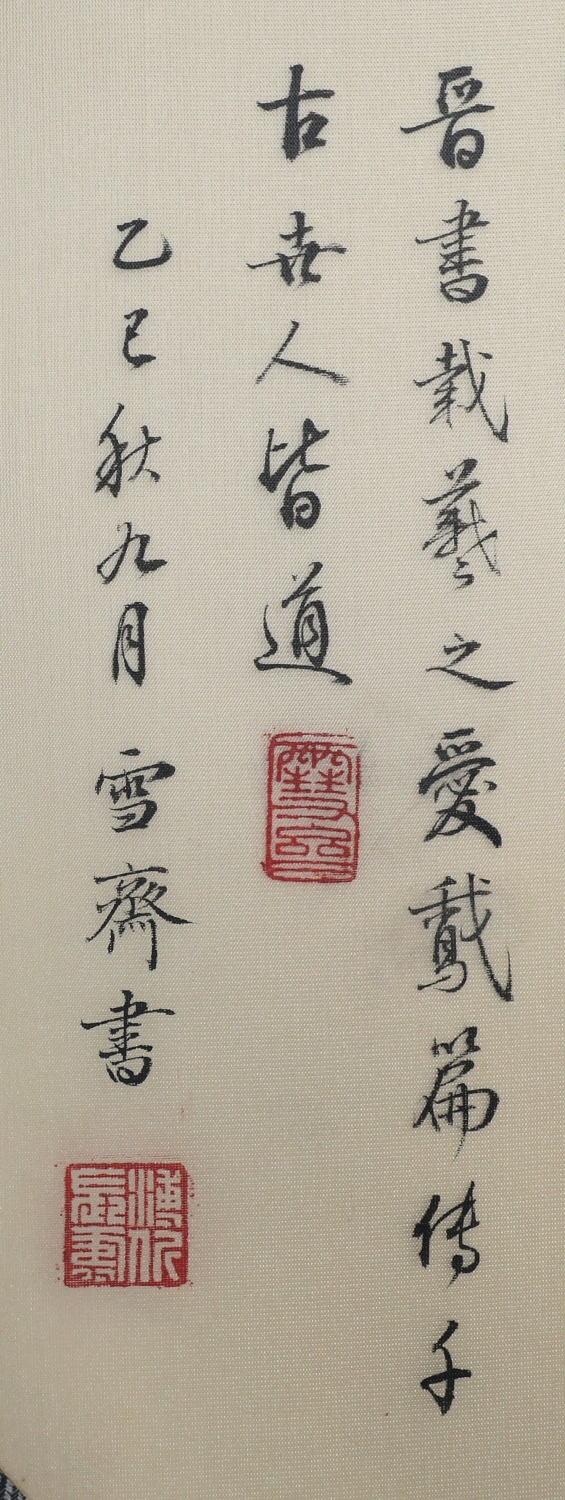 晉書載羲之愛鵞篇傳千
古世人皆道
乙巳秋九月雪齋書